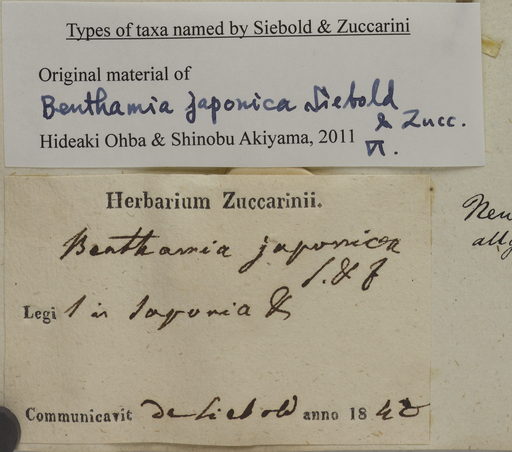 Types of taxa named by Siebold & Zuccarini
Original material of
Benthamia japonica Siebold
& Zucc.
Hideaki Ohba & Shinobu Akiyama, 2011
Herbarium Zuccarinii.
Benthamia japonica
S. & Z
Legi in Japonia
Communicavit de Siebold anno 1842